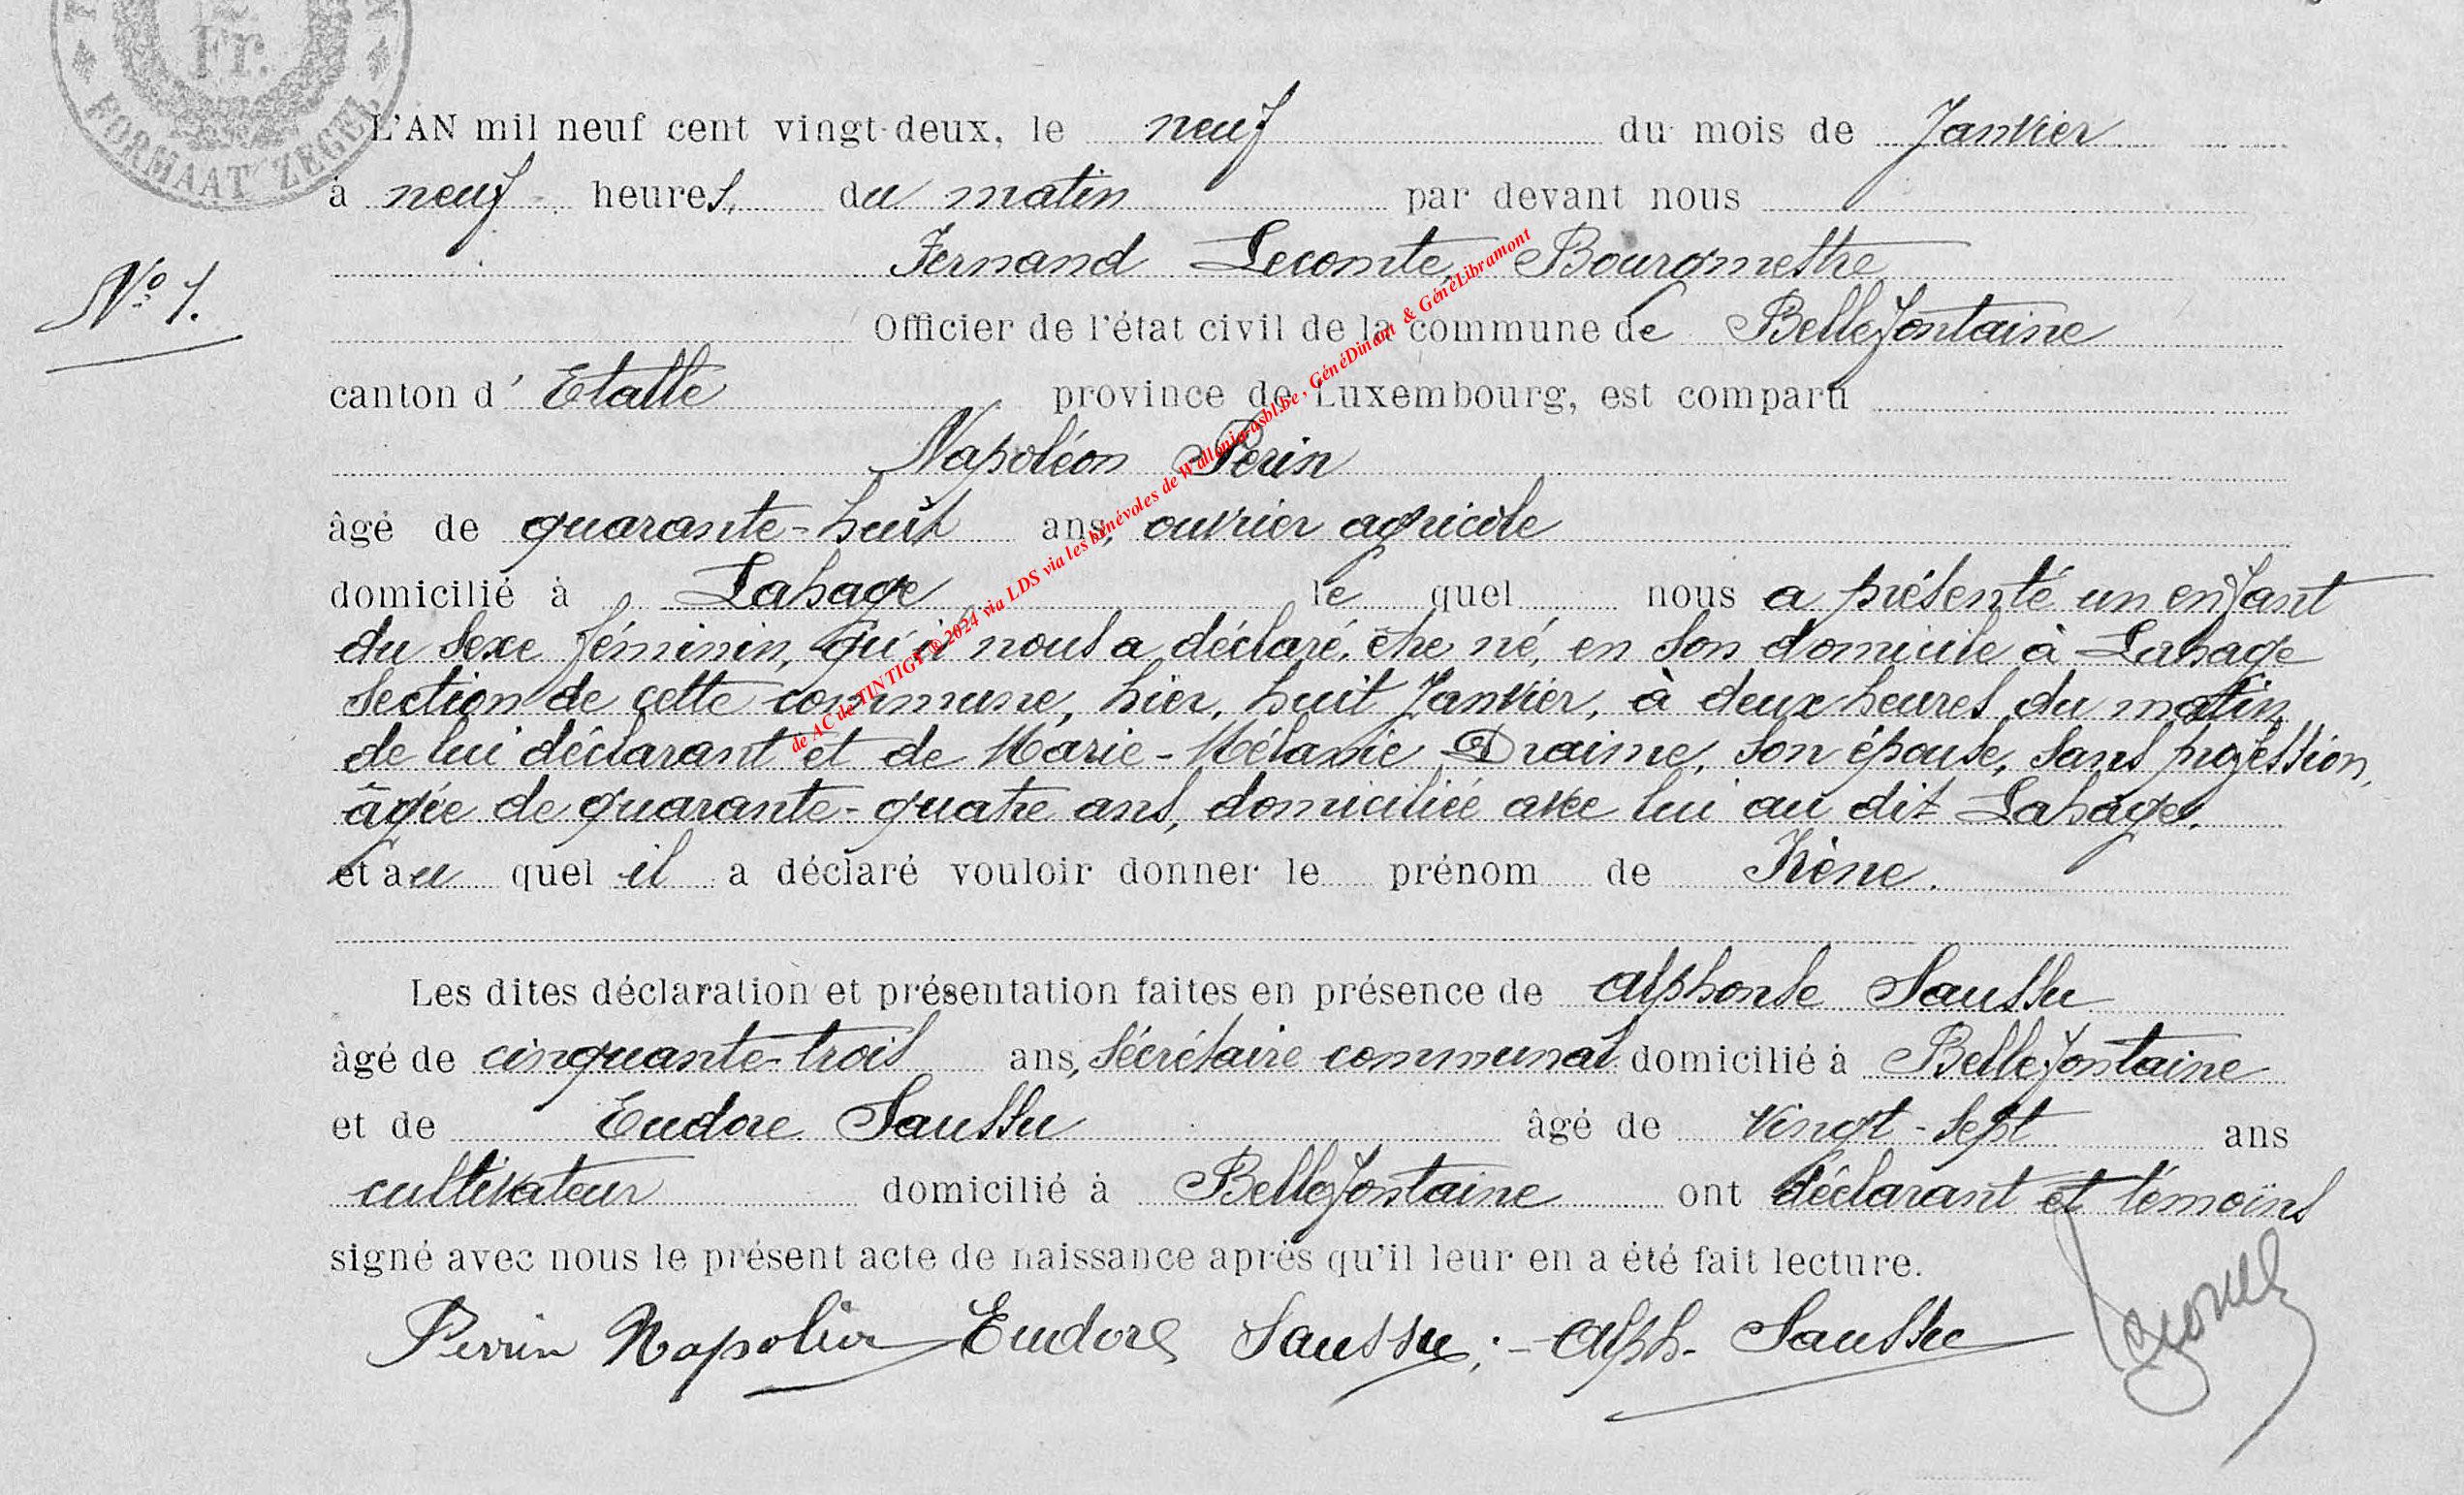 Fr.
FORMAAT ZEGEL
L'AN mil neuf cent vingt-deux, le neuf du mois de Janvier
à neuf heures, du matin par devant nous
Fernand Lecomte, Bourgmestre
N° 1.
Officier de l'état civil de la commune de Bellefontaine
canton d' Etalle province de Luxembourg, est comparu
Napoléon Perin
âgé de quarante-huit ans, ouvrier agricole
domicilié à Lahage le quel nous a présenté un enfant
du sexe féminin, qu'il nous a déclaré, être né, en son domicile à Lahage
section de cette commune, hier, huit Janvier, à deux heures du matin,
de lui déclarant et de Marie-Mélanie Draime, son épouse, sans profession,
âgée de quarante-quatre ans, domiciliée avec lui au dit Lahage,
et au quel il a déclaré vouloir donner le prénom de Irène.
Les dites déclaration et présentation faites en présence de Alphonse Saussu
âgé de cinquante-trois ans, sécrétaire communal domicilié à Bellefontaine
et de Eudore Saussu âgé de vingt-sept ans
cultivateur domicilié à Bellefontaine ont déclarant et témoins
signé avec nous le présent acte de naissance après qu'il leur en a été fait lecture.
Perrin Napoléon Eudore Saussu ; - Alph. Saussu
de AC de TINTIGY ® 2024 via LDS via les bénévoles de Wallonia-asbl.be, GénéDinant & GénéLibramont